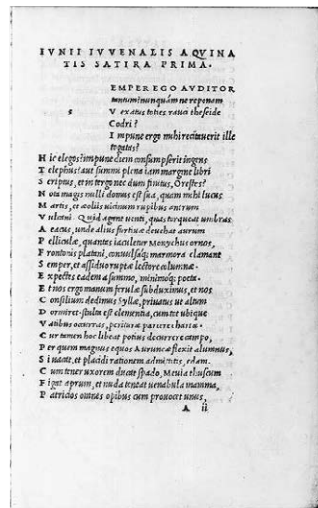 IVNII IVVENALIS AQVINA
TIS SATIRA PRIMA.
EMPER EGO AVDITOR
tantum? nunquám ne reponam
s V exatus toties rauci theseide
Codri?
I mpune ergo mihi recitauerit ille
togatas?
H ic elegos? impune diem consumpserit ingens
T elephus? aut summi plena iam margine libri
S criptus, et in tergo nec dum finitus, Orestes?
N ota magis nulli domus est sua, quam mihi lucus
M artis, et aeoliis uicinum rupibus antrum
V ulcani. Quid agant uenti, quas torqueat umbras
A eacus, unde alius furtiuae deuehat aurum
P elliculae, quantas iaculetur Monychus ornos,
F rontonis platani, conuulsaq; marmora clamant
S emper, et assiduo ruptae lectore columnae.
E xpectes eadem a summo, minimoq; poeta.
E t nos ergo manum ferulae subduximus, et nos
C onsilium dedimus Syllae, priuatus ut altum
D ormiret. stulta est clementia, cum tot ubique
V atibus occurras, periturae parcere chartae.
C ur tamen hoc libeat potius decurrere campo,
P er quem magnus equos Auruncae flexit alumnus,
S i uacat, et placidi rationem admittitis, edam.
C um tener uxorem ducat spado, Meuia thuscum
F igat aprum, et nuda teneat uenabula mamma,
P atricios omnes opibus cum prouocet unus,
A ii